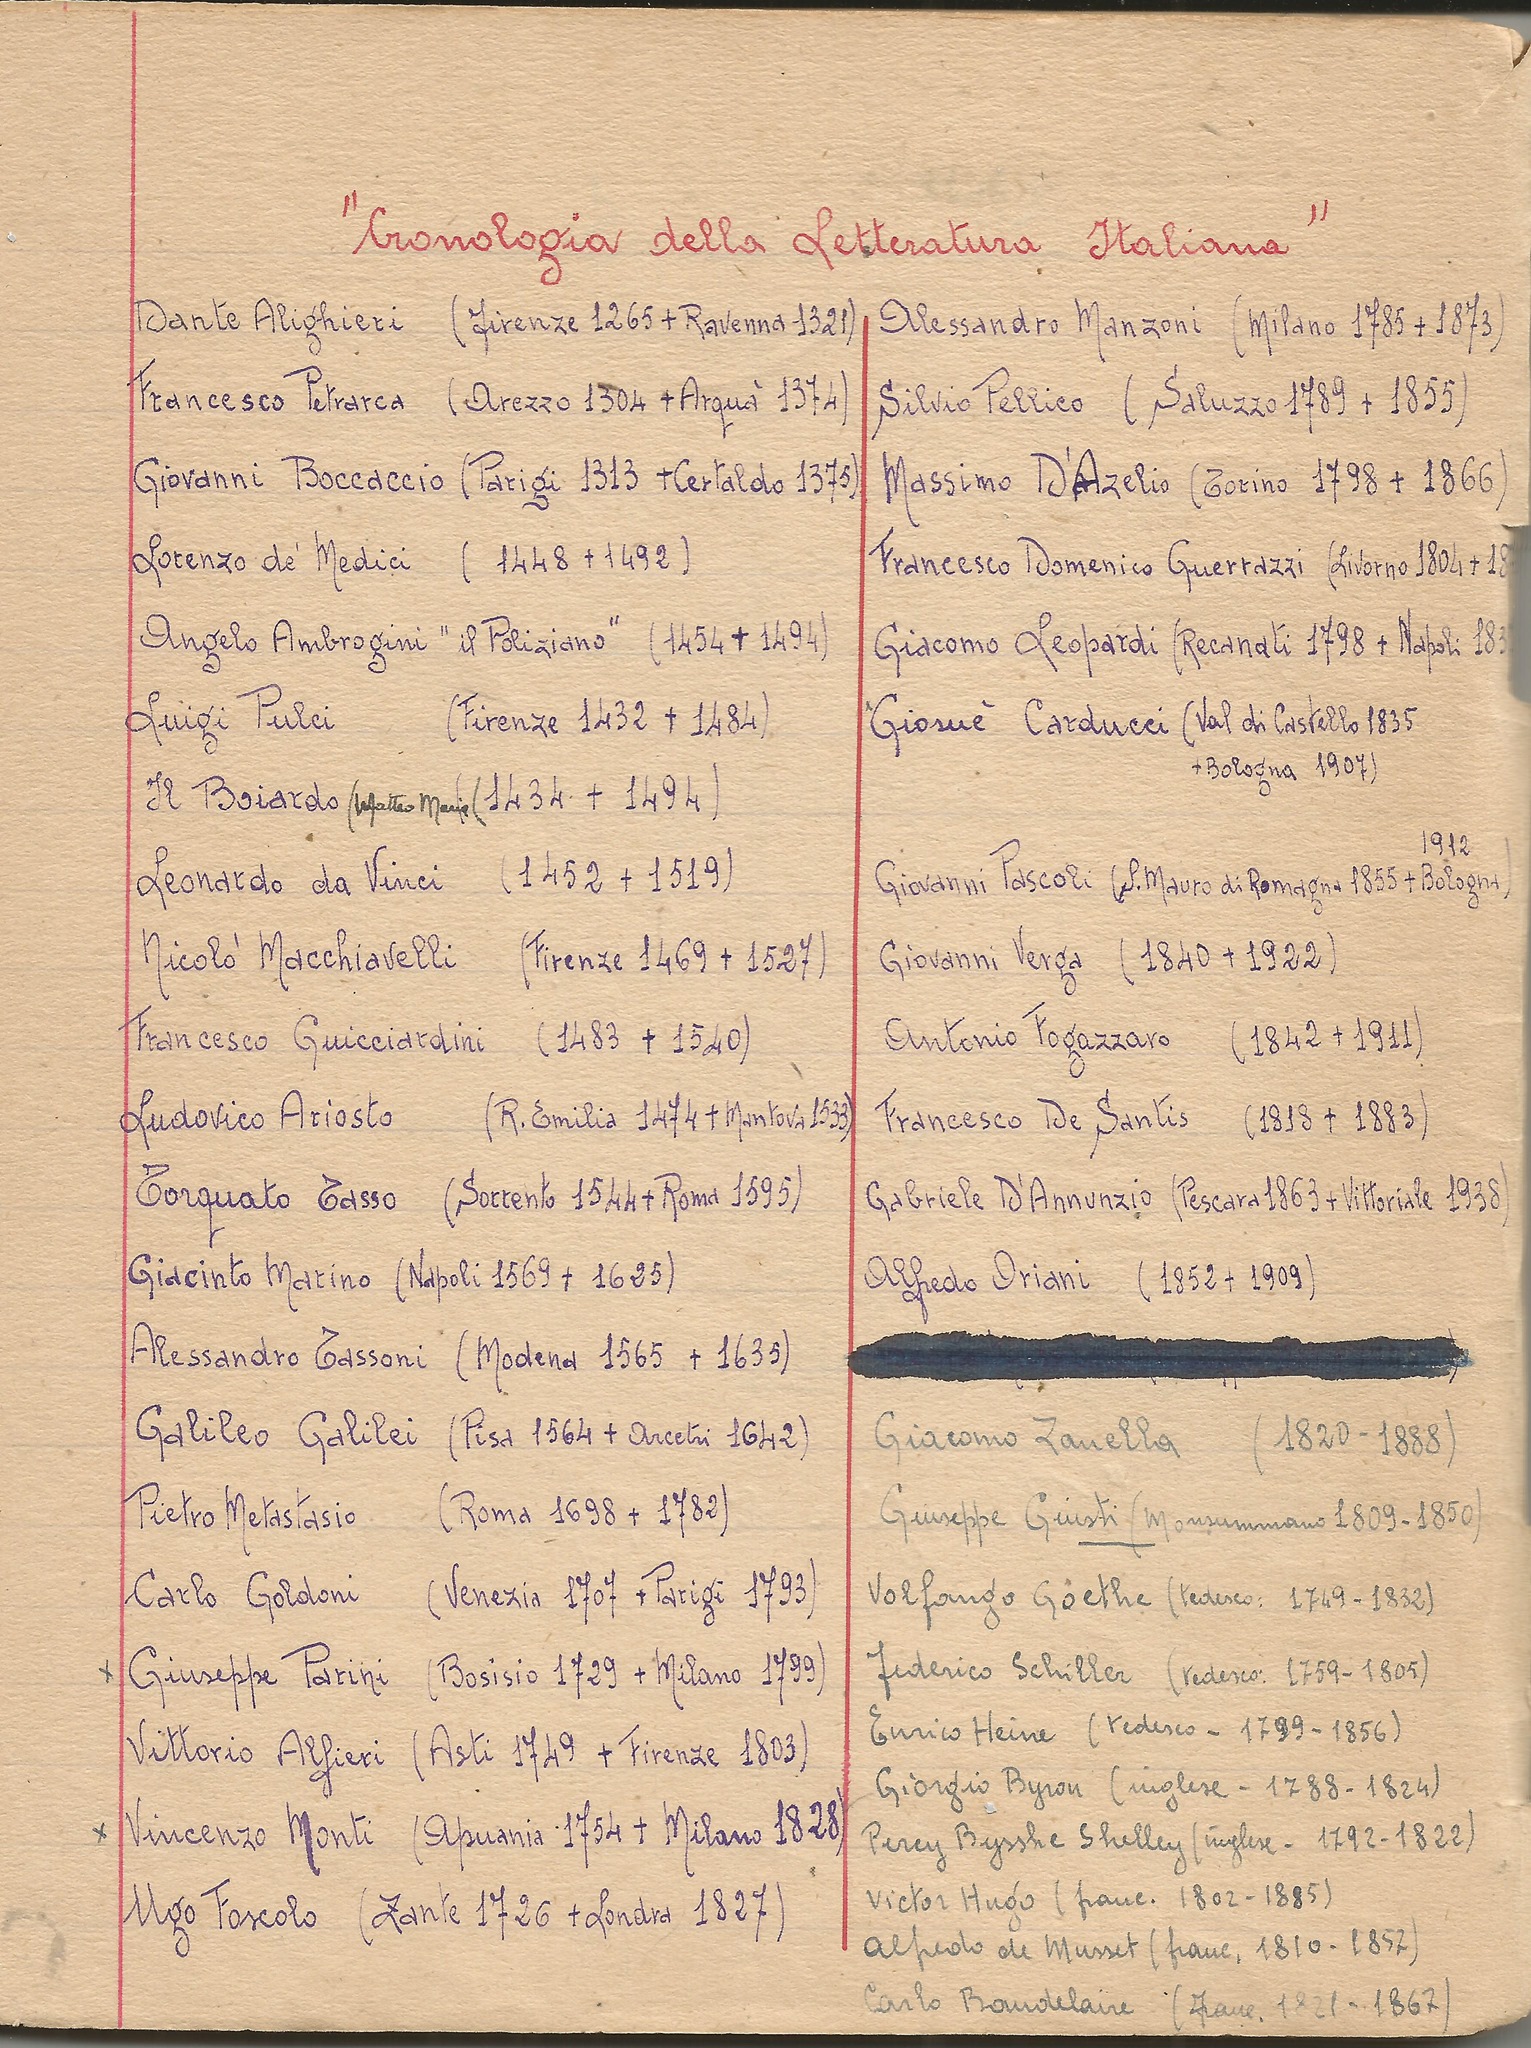 "Cronologia della Letteratura Italiana"
Dante Alighieri (Firenze 1265 + Ravenna 1321)
Francesco Petrarca (Arezzo 1304 + Arquà 1374)
Giovanni Boccaccio (Parigi 1313 + Certaldo 1375)
Lorenzo de' Medici (1448 + 1492)
Angelo Ambrogini "il Poliziano" (1454 + 1494)
Luigi Pulci (Firenze 1432 + 1484)
Il Boiardo (Matteo Maria) (1434 + 1494)
Leonardo da Vinci (1452 + 1519)
Nicolò Macchiavelli (Firenze 1469 + 1527)
Francesco Guicciardini (1483 + 1540)
Ludovico Ariosto (R. Emilia 1474 + Mantova 1533)
Torquato Tasso (Sorrento 1544 + Roma 1595)
Giacinto Marino (Napoli 1569 + 1625)
Alessandro Tassoni (Modena 1565 + 1635)
Galileo Galilei (Pisa 1564 + Arcetri 1642)
Pietro Metastasio (Roma 1698 + 1782)
Carlo Goldoni (Venezia 1707 + Parigi 1793)
x Giuseppe Parini (Bosisio 1729 + Milano 1799)
Vittorio Alfieri (Asti 1749 + Firenze 1803)
x Vincenzo Monti (Apuania 1754 + Milano 1828)
Ugo Foscolo (Zante 1726 + Londra 1827)
Alessandro Manzoni (Milano 1785 + 1873)
Silvio Pellico (Saluzzo 1789 + 1855)
Massimo D'Azelio (Torino 1798 + 1866)
Francesco Domenico Guerrazzi (Livorno 1804 + 18
Giacomo Leopardi (Recanati 1798 + Napoli 183
Giosuè Carducci (Val di Castello 1835
+ Bologna 1907)
1912
Giovanni Pascoli (S. Mauro di Romagna 1855 + Bologna)
Giovanni Verga (1840 + 1922)
Antonio Fogazzaro (1842 + 1911)
Francesco De Santis (1818 + 1883)
Gabriele D'Annunzio (Pescara 1863 + Vittoriale 1938)
Alfredo Oriani (1852 + 1909)
Giacomo Zanella (1820 - 1888)
Giuseppe Giusti (Monsummano 1809 - 1850)
Volfango Goethe (tedesco: 1749 - 1832)
Federico Schiller (tedesco: 1759 - 1805)
Enrico Heine (tedesco - 1799 - 1856)
Giorgio Byron (inglese - 1788 - 1824)
Percy Bysshe Shelley (inglese - 1792 - 1822)
Victor Hugo (franc. 1802 - 1885)
Alfredo de Musset (franc. 1810 - 1857)
Carlo Baudelaire (franc. 1821 - 1867)